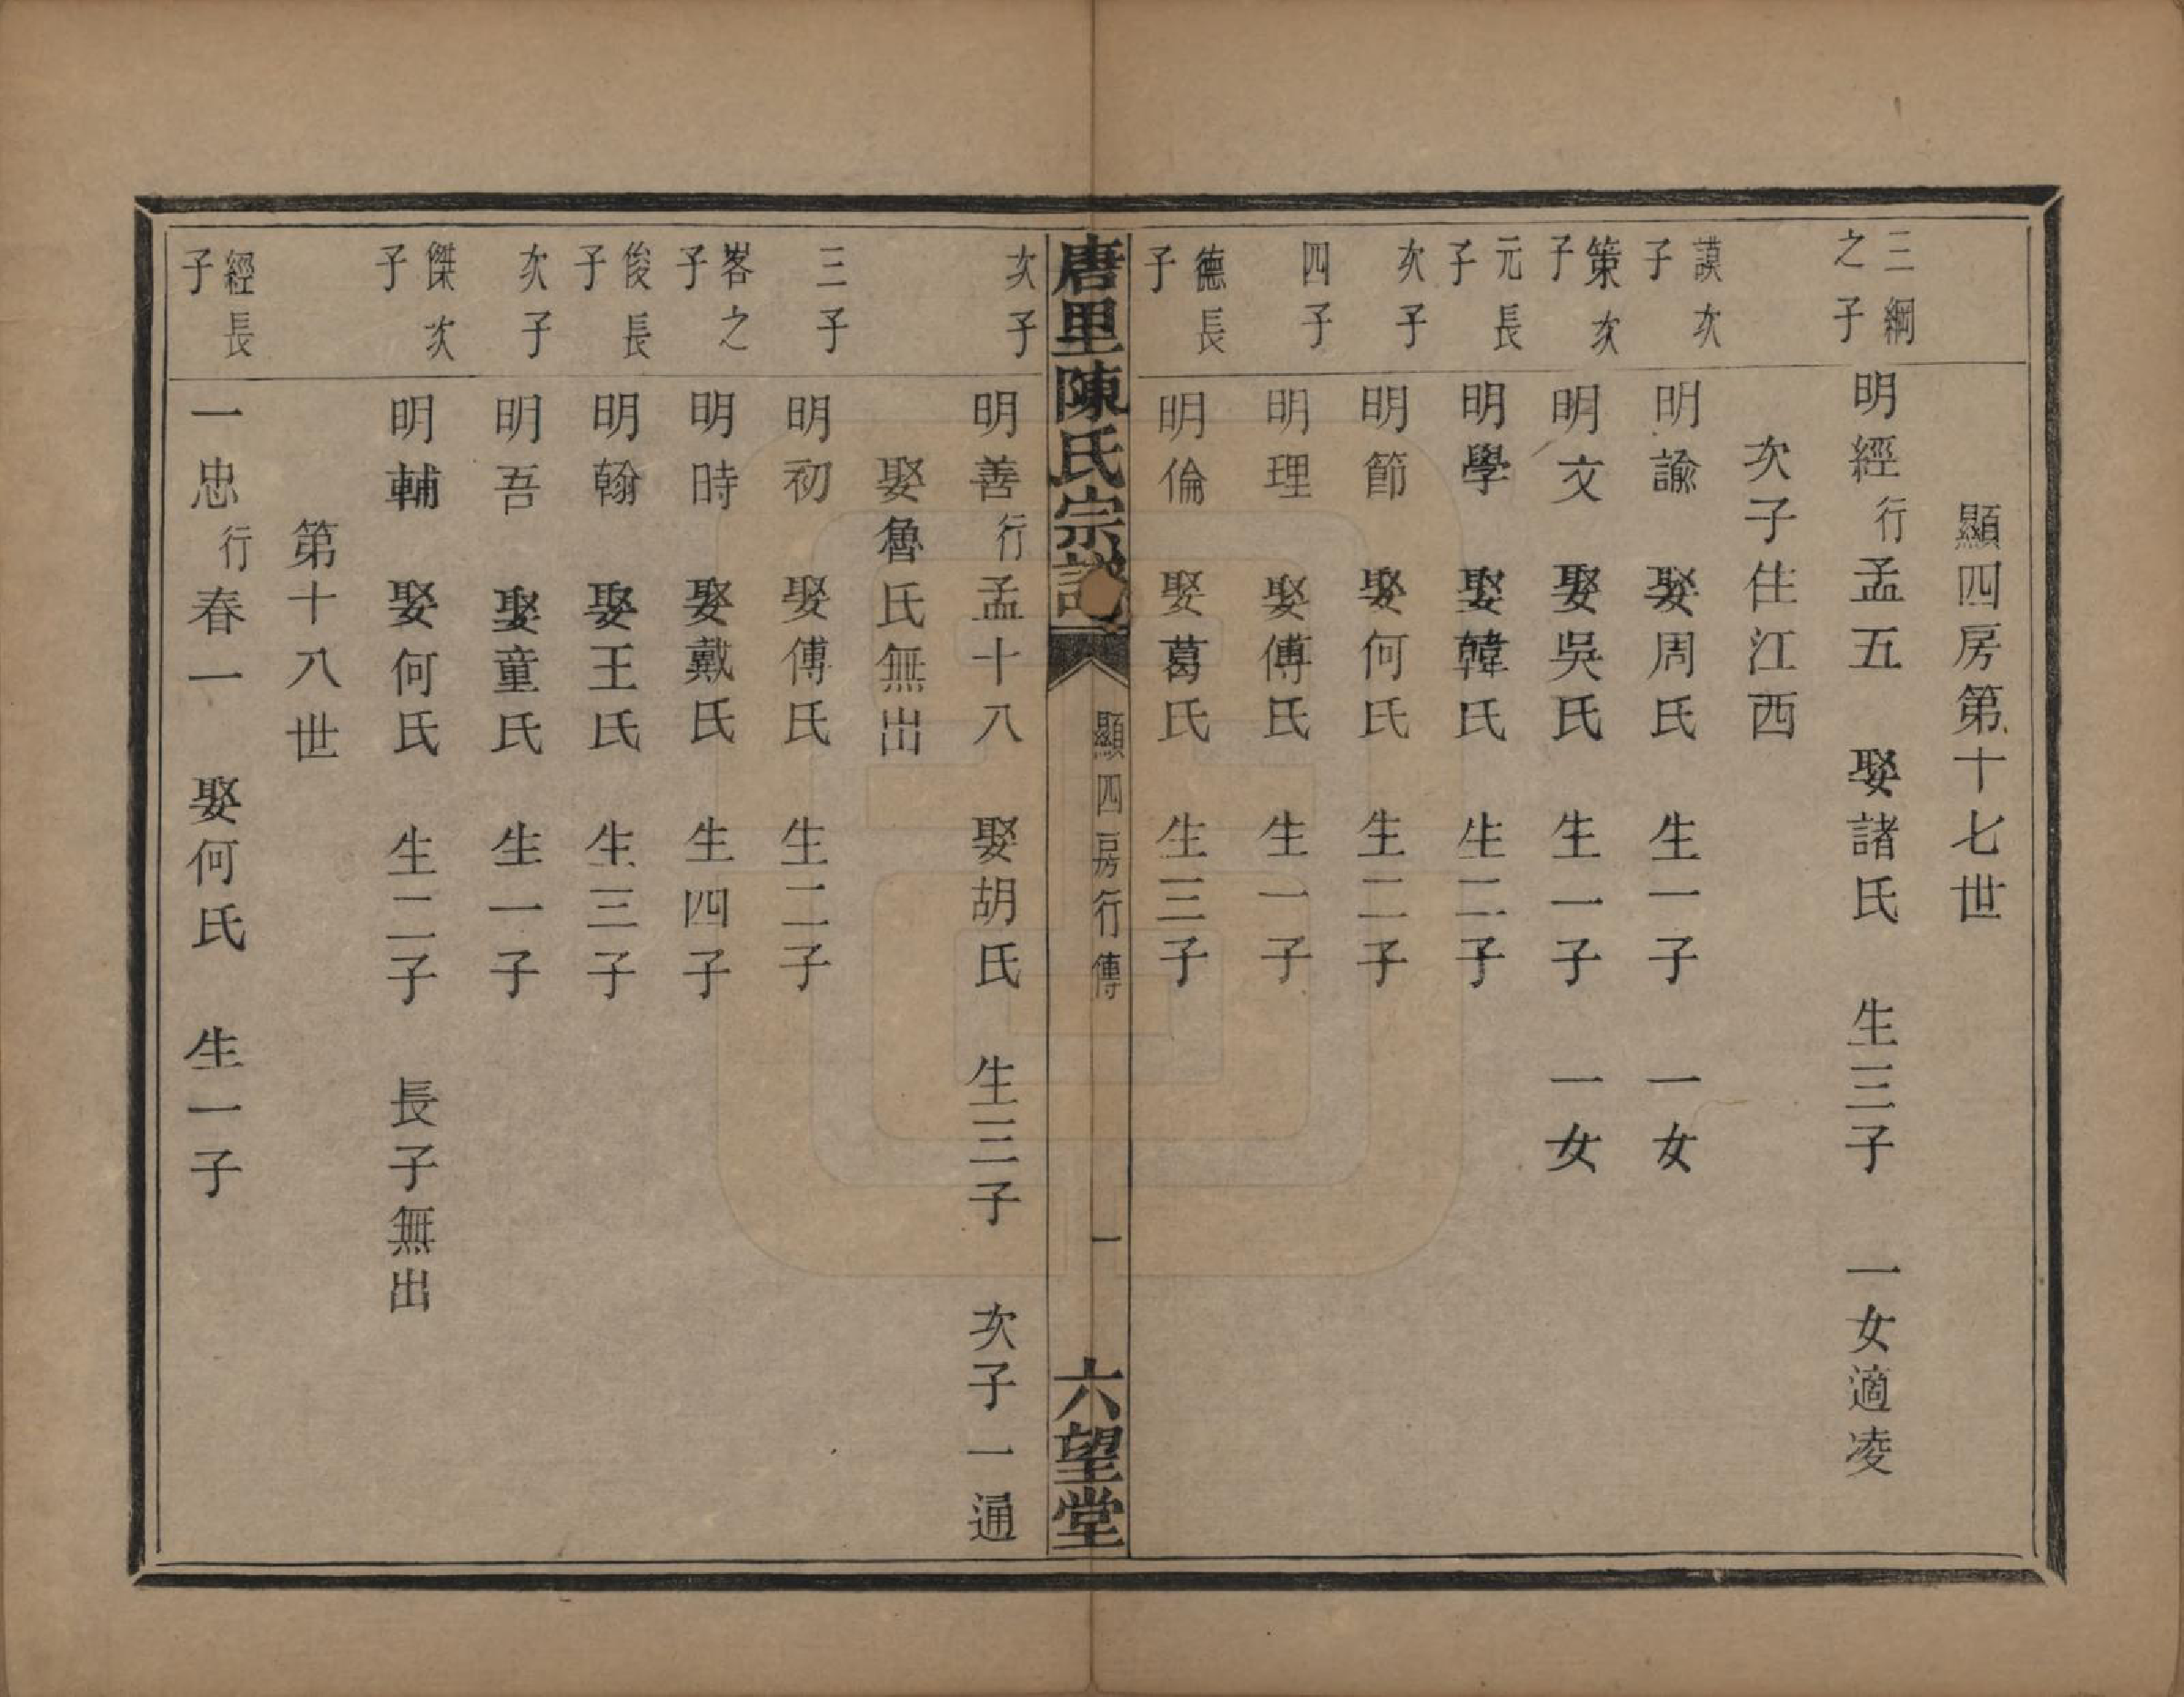 顯四房第十七世
三綱之子 明經行孟五 娶諸氏 生三子 一女適凌
次子住江西
謨次子 明諭 娶周氏 生一子 一女
策次子 明文 娶吳氏 生一子 一女
元長子 明學 娶韓氏 生二子
次子 明節 娶何氏 生二子
四子 明理 娶傅氏 生一子
德長子 明倫 娶葛氏 生三子
唐里陳氏宗譜 顯四房行傳 一 六望堂
次子 明善行孟十八 娶胡氏 生三子 次子一通
娶魯氏無出
三子 明初 娶傅氏 生二子
畧之子 明時 娶戴氏 生四子
俊長子 明翰 娶王氏 生三子
次子 明吾 娶童氏 生一子
傑次子 明輔 娶何氏 生二子 長子無出
第十八世
經長子 一忠行春一 娶何氏 生一子